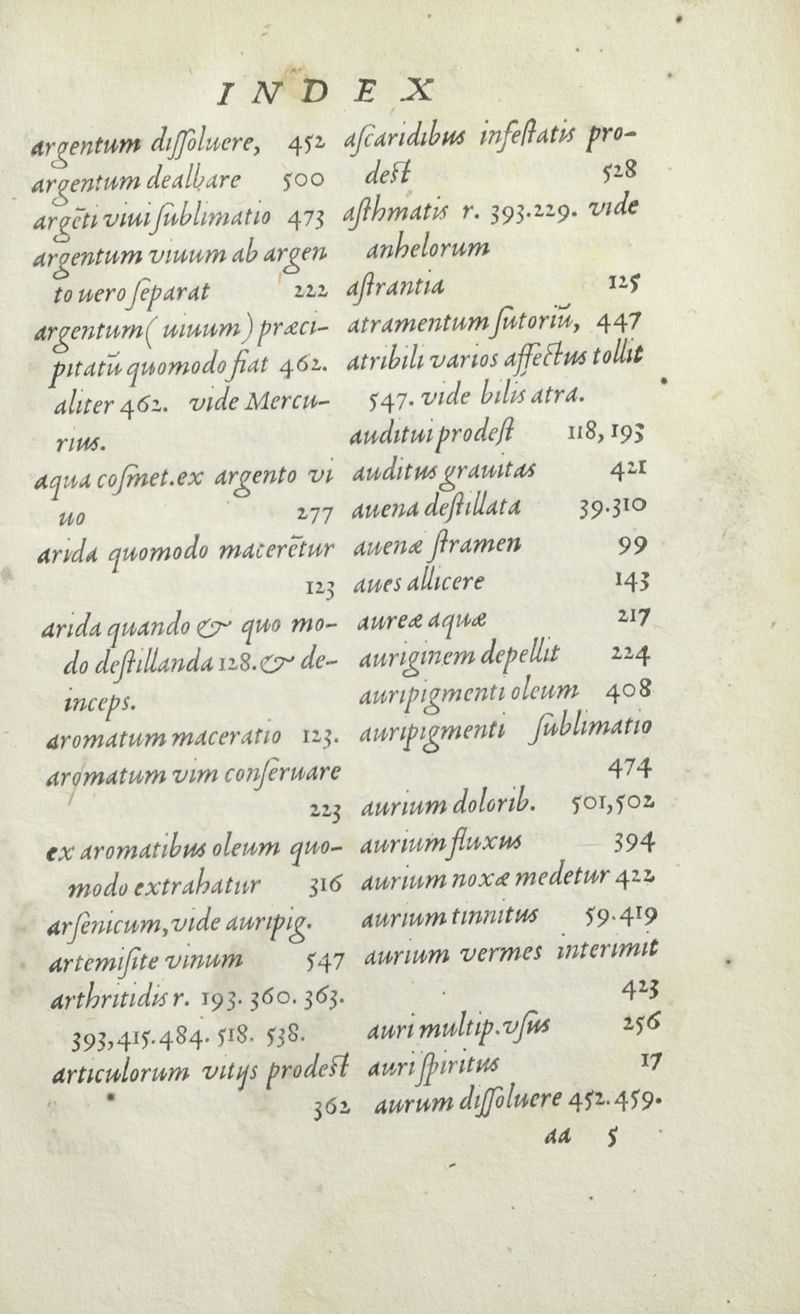 INDEX
argentum diſſoluere, 452
argentum dealbare 500
argẽti viui ſublimatio 473
argentum viuum ab argen
to uero ſeparat 222
argentum (uiuum) præci-
pitatũ quomodo fiat 462.
aliter 462. vide Mercu-
rius.
aqua coſmet. ex argento vi
uo 277
arida quomodo macerẽtur
123
arida quando & quo mo-
do deſtillanda 128. & de-
inceps.
aromatum maceratio 123.
aromatum vim conſeruare
223
ex aromatibus oleum quo-
modo extrahatur 316
arſenicum, vide auripig.
artemiſite vinum 547
arthritidis r. 193. 360. 363.
393, 415. 484. 518. 538.
articulorum vitijs prodeſt
362
aſcaridibus infeſtatis pro-
deſt 528
aſthmatis r. 393. 229. vide
anhelorum
aſtrantia 125
atramentum ſutoriũ, 447
atribili varios affectus tollit
547. vide bilis atra.
auditui prodeſt 118, 193
auditus grauitas 421
auena deſtillata 39. 310
auenæ ſtramen 99
aues allicere 143
aureæ aquæ 217
auriginem depellit 224
auripigmenti oleum 408
auripigmenti ſublimatio
474
aurium dolorib. 501, 502
aurium fluxus 394
aurium noxæ medetur 422
aurium tinnitus 59. 419
aurium vermes interimit
423
auri multip. vſus 256
auri ſpiritus 17
aurum diſſoluere 452. 459.
aa 5